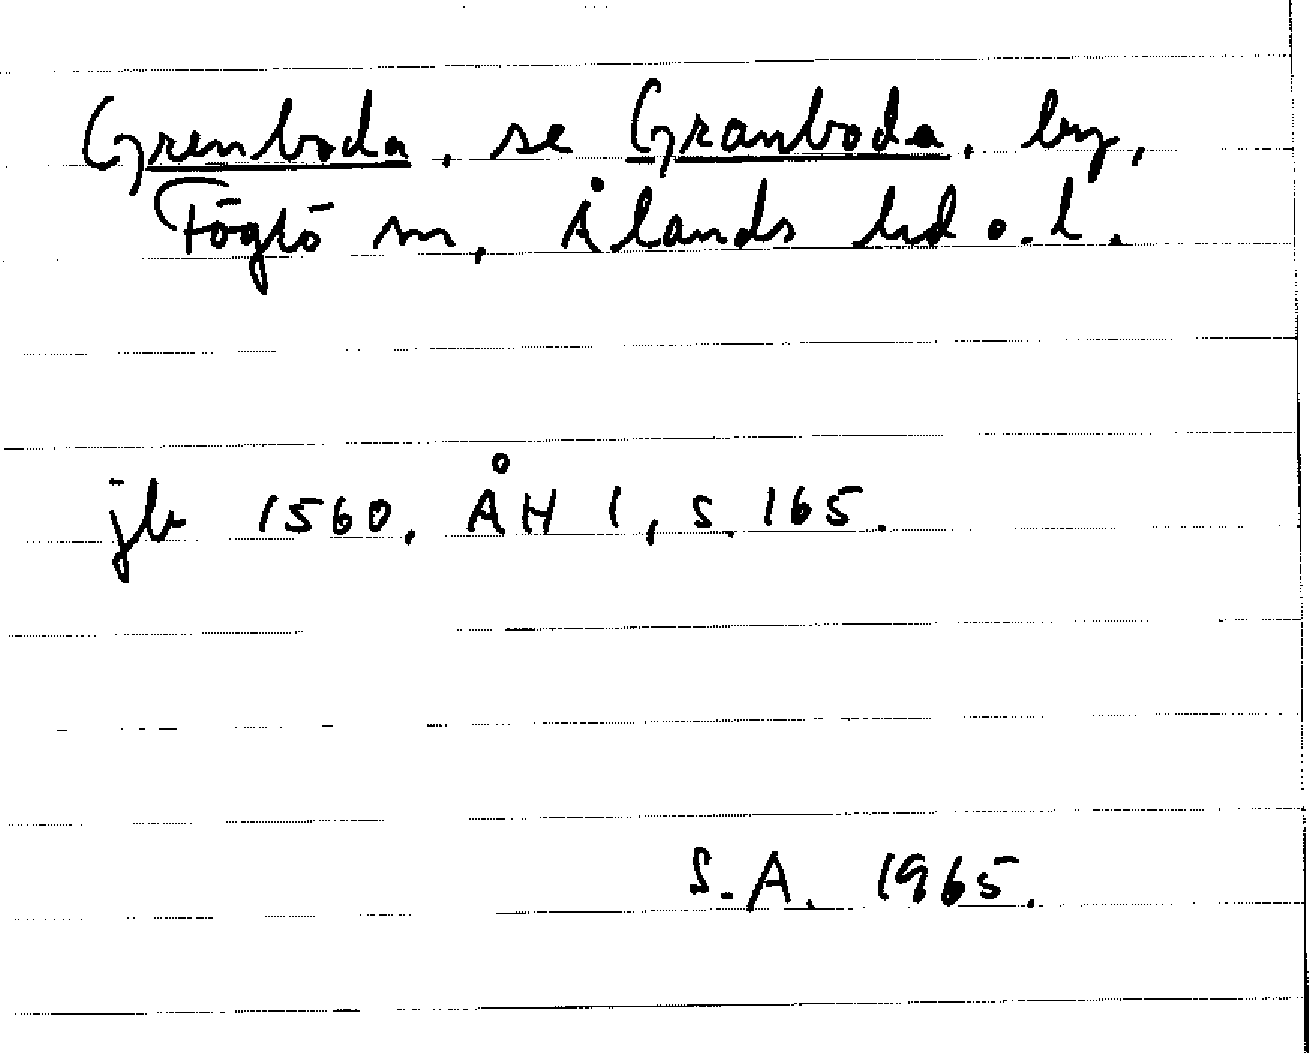 Grenboda, se Granboda, by,
Föglö sn, Ålands hd o. l.
jb 1560. ÅH 1, s. 165.
S.A. 1965.